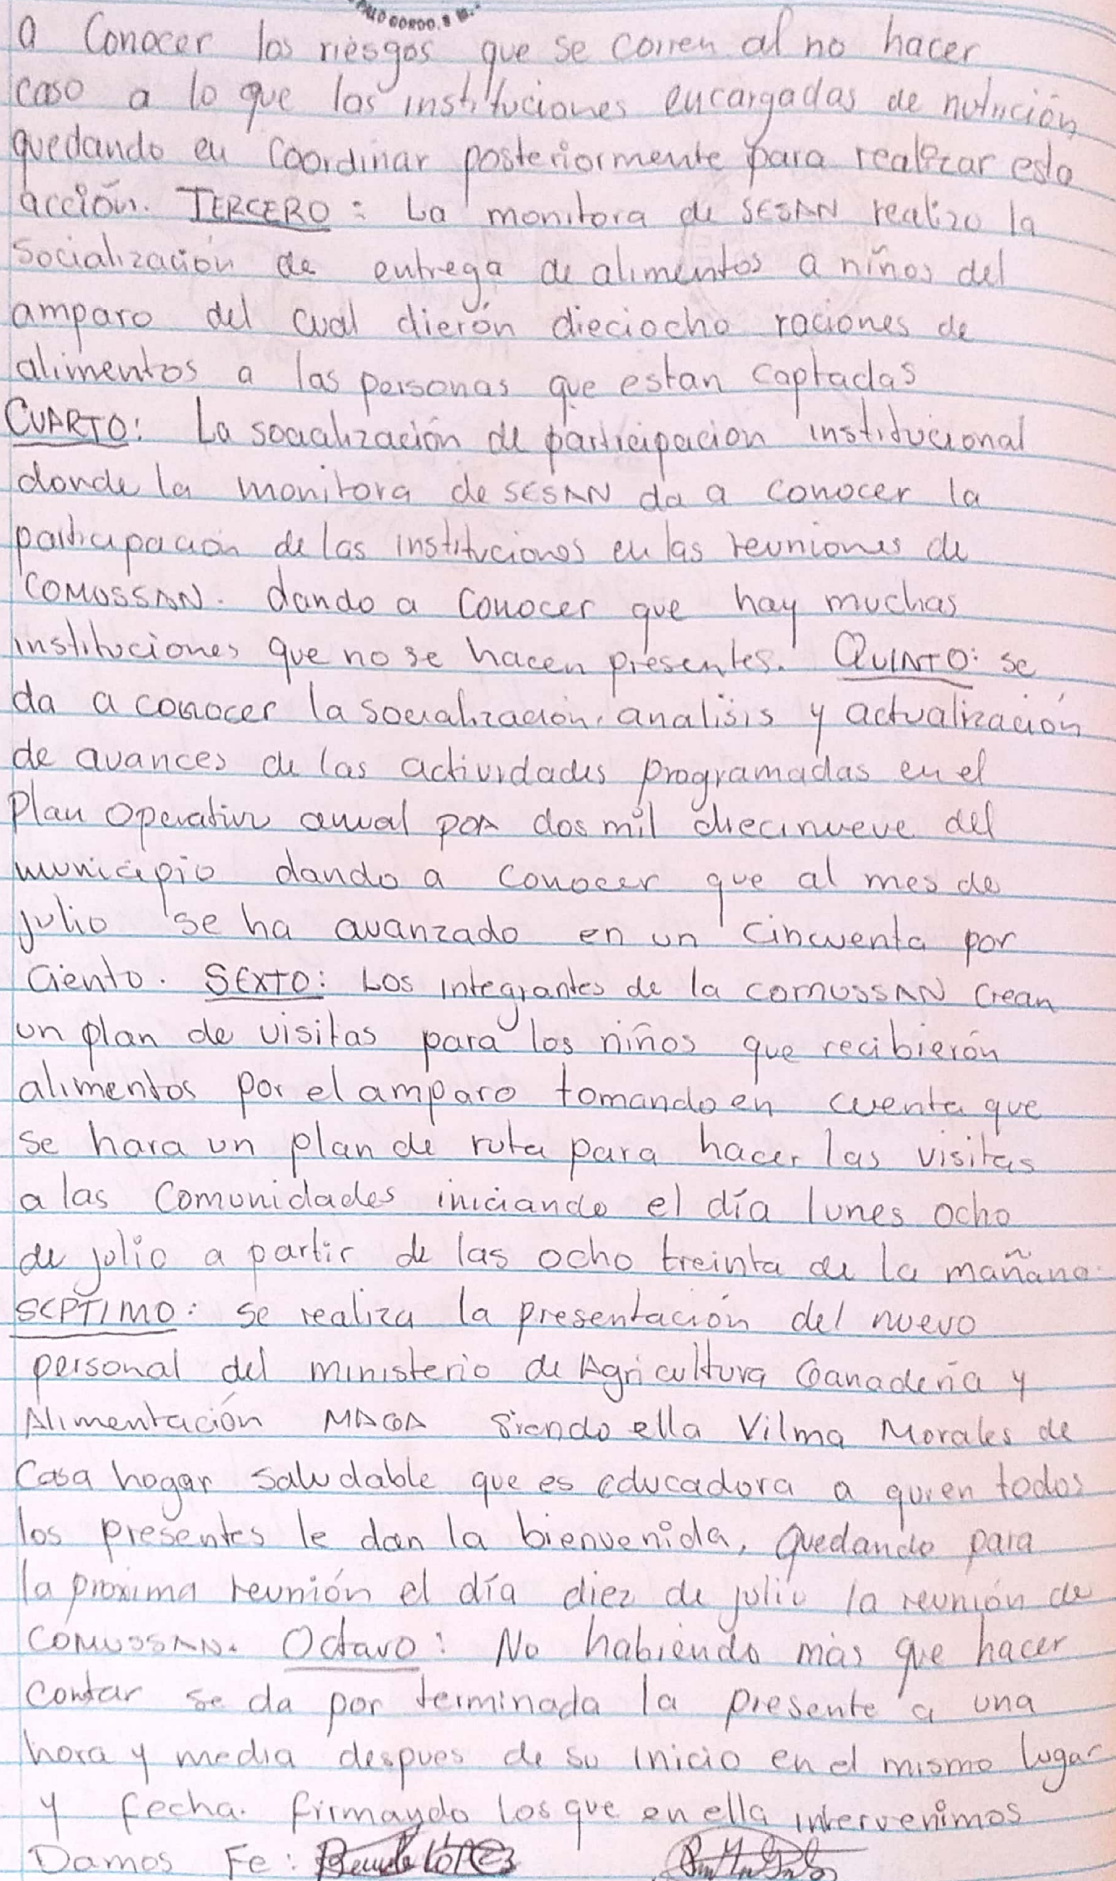 a Conocer los riesgos que se corren al no hacer
caso a lo que las instituciones encargadas de nutrición
quedando en coordinar posteriormente para realizar esta
acción. TERCERO: La monitora de SESAN realizo la
socialización de entrega de alimentos a niños del
amparo del cual dierón dieciocho raciones de
alimentos a las personas que estan captadas
CUARTO: La socialización de participacion institucional
donde la monitora de SESAN da a conocer la
participación de las instituciones en las reuniones de
COMUSSAN. dando a conocer que hay muchas
instituciones que no se hacen presentes. QUINTO: se
da a conocer la socialización, analisis y actualización
de avances de las actividades programadas en el
Plan Operativo anual POA dos mil diecinueve del
municipio dando a conocer que al mes de
julio se ha avanzado en un cincuenta por
ciento. SEXTO: Los integrantes de la COMUSSAN crean
un plan de visitas para los niños que recibierón
alimentos por el amparo tomando en cuenta que
se hara un plan de ruta para hacer las visitas
a las Comunidades iniciando el día lunes ocho
de julio a partir de las ocho treinta de la mañana.
SEPTIMO: se realiza la presentación del nuevo
personal del ministerio de Agricultura Ganadería y
Alimentación MAGA siendo ella Vilma Morales de
Casa hogar saludable que es educadora a quien todos
los presentes le dan la bienvenida, quedando para
la proxima reunión el día diez de julio la reunión de
COMUSSAN. Octavo: No habiendo más que hacer
contar se da por terminada la presente a una
hora y media despues de su inicio en el mismo lugar
y fecha. firmando los que en ella intervenimos
Damos Fe: